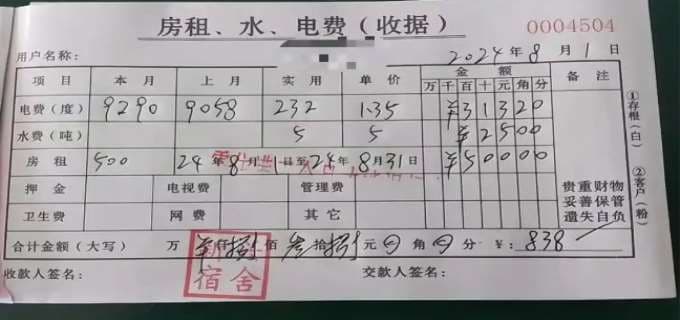 房租、水、电费(收据) 0004504
用户名称: 2024年8月1日
项目 本月 上月 实用 单价 金额 备注
万千百十元角分
电费(度) 9290 9058 232 1.35 ¥31320
水费(吨) 5 5 ¥2500
房租 500 24年8月1日至24年8月31日 ¥50000
押金 电视费 管理费 贵重财物
妥善保管
卫生费 网费 其它 遗失自负
合计金额(大写) 万 仟捌佰叁拾捌元 角 分 ¥: 838
收款人签名: 交款人签名:
新
宿舍
①存根(白)
②客户(粉)